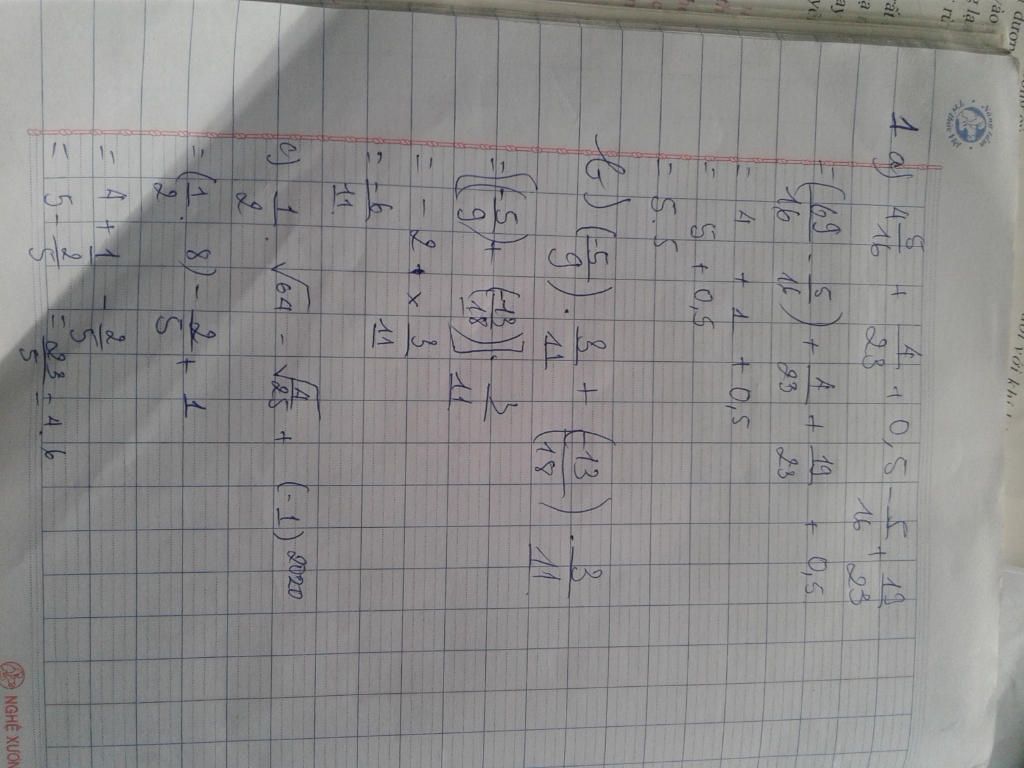 1 a) 4 5/16 + 4/23 + 0,5 - 5/16 + 19/23
= (69/16 - 5/16) + 4/23 + 19/23 + 0,5
= 4 + 1 + 0,5
= 5 + 0,5
= 5.5
b) (-5/9) . 3/11 + (-13/18) . 3/11
= [(-5/9) + (-13/18)] . 3/11
= -2 . x 3/11
= -6/11
c) 1/2 . √64 - √4/25 + (-1)2020
= (1/2 . 8) - 2/5 + 1
= 4 + 1 - 2/5
= 5 - 2/5 = 23/5 = 4.6
NGHÊ